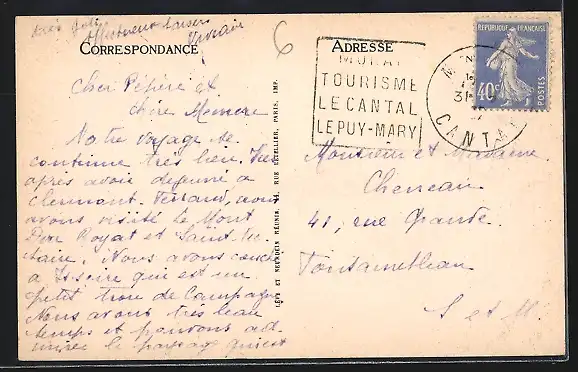 très jolie
Affectueux baisers
CORRESPONDANCE
Cher Pépère et
chère Memère
Notre voyage se
continue très bien. Hier
après avoir dejeuné a
Clermont-Ferrand, nous
avons visité le Mont
Dore Royat et Saint Nec
taire. Nous avons couché
a Issoire qui est un
petit trou de Campagne
Nous avons très beau
temps et pouvons ad-
mirer le paysage qui est
LÉVY ET NEURDEIN RÉUNIS, 44, RUE LETELLIER, PARIS, IMP.
6
ADRESSE
MURAT
TOURISME
LE CANTAL
LE PUY-MARY
CANTAL
RÉPUBLIQUE FRANÇAISE
40c
POSTES
Monsieur et Madame
Cheneau
41, rue Grande.
Fontainebleau
S et M.